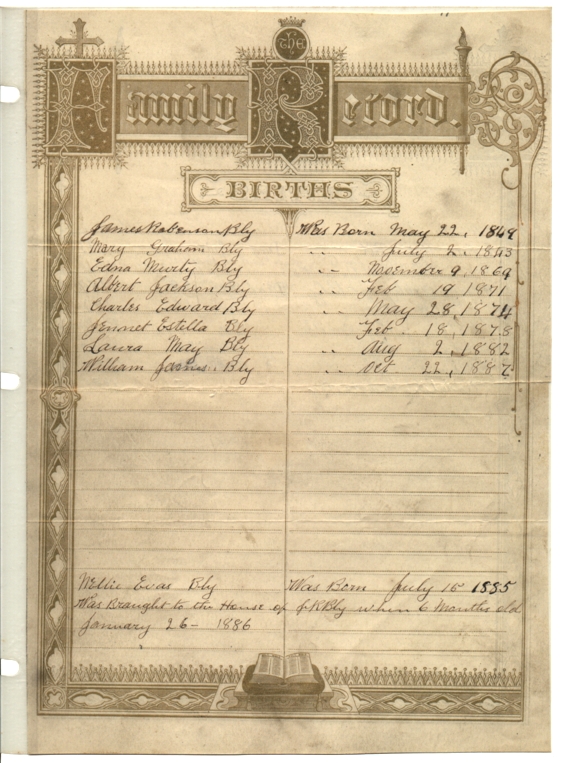 The Family Record.
BIRTHS
James Robenson Bly Was Born May 22, 1849
Mary Graham Bly " July 2, 1843
Edna Murty Bly " November 9, 1869
Albert Jackson Bly " Feb 19 1871
Charles Edward Bly " May 28, 1874
Jennet Estella Bly " Feb 18, 1878
Laura May Bly " Aug 2, 1882
William James Bly " Oct 22, 1887
Nellie Evas Bly Was Born July 15 1885
Was Braught to the House of J R Bly when 6 Months old
January 26 - 1886